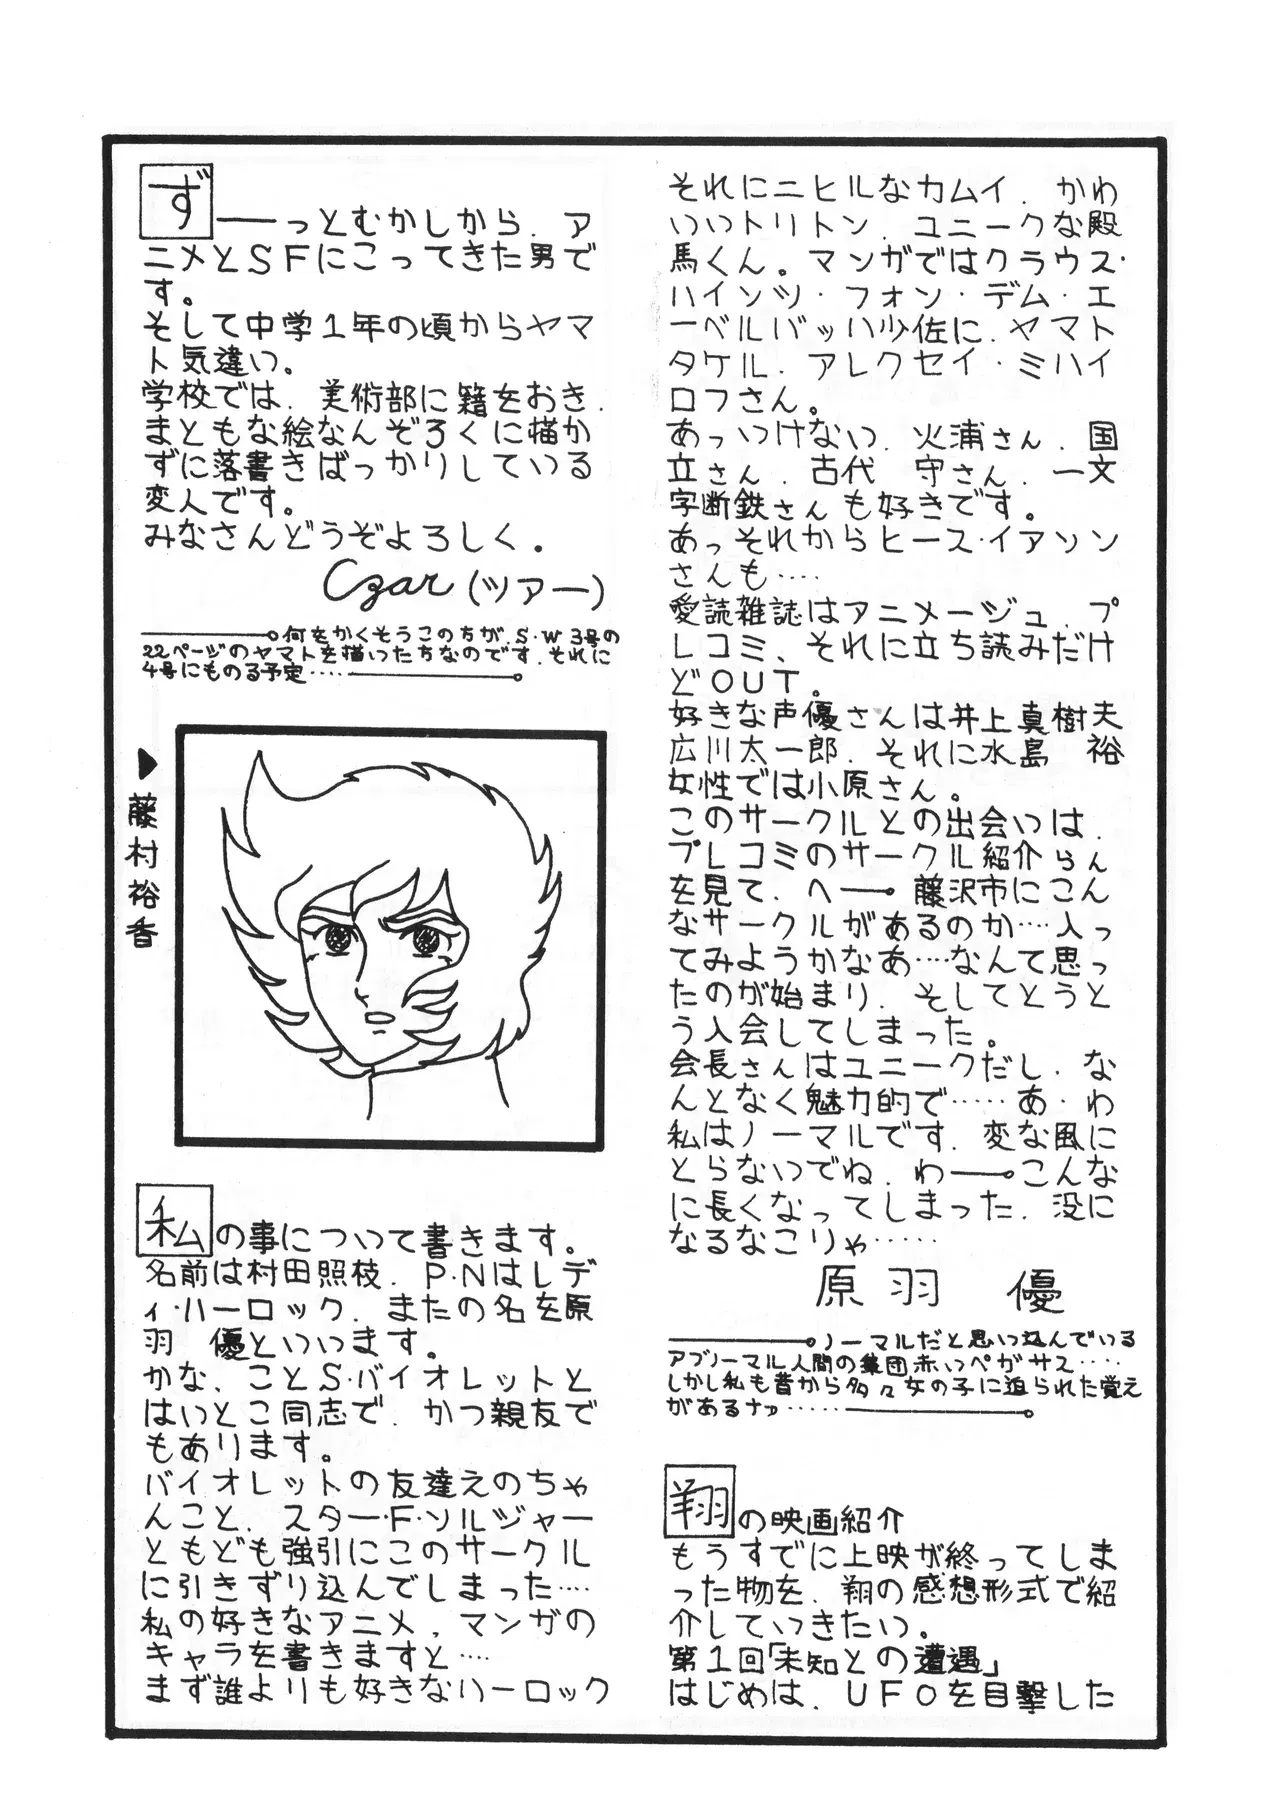 ず――っとむかしから、ア
ニメとSFにこってきた男で
す。
そして中学1年の頃からヤマ
ト気違い。
学校では、美術部に籍をおき、
まともな絵なんぞろくに描か
ずに落書きばっかりしている
変人です。
みなさんどうぞよろしく。
Czar(ツアー)
何をかくそうこのちが、S・W 3号の
22ページのヤマトを描いたちなのです、それに
4号にものる予定‥‥
▶藤村裕香
私の事について書きます。
名前は村田照枝、P・Nはレデ
ィ・ハーロック、またの名を原
羽 優といいます。
かな、ことS・バイオレットと
はいとこ同志で、かつ親友で
もあります。
バイオレットの友達えのちゃ
んこと、スター・F・ソルジャー
ともども強引にこのサークル
に引きずり込んでしまった‥‥
私の好きなアニメ、マンガの
キャラを書きますと‥‥
まず誰よりも好きなハーロック
それにニヒルなカムイ、かわ
いいトリトン、ユニークな殿
馬くん。マンガではクラウス・
ハインツ・フォン・デム・エ
ーベルバッハ少佐に、ヤマト
タケル、アレクセイ・ミハイ
ロフさん。
あっいけない、火浦さん、国
立さん、古代 守さん、一文
字断鉄さんも好きです。
あっそれからヒース・イアソン
さんも‥‥
愛読雑誌はアニメージュ、プ
レコミ、それに立ち読みだけ
どOUT。
好きな声優さんは井上真樹夫
広川太一郎、それに水島 裕
女性では小原さん。
このサークルとの出会いは、
プレコミのサークル紹介らん
を見て、へ――藤沢市にこん
なサークルがあるのか‥‥入っ
てみようかなあ‥‥なんて思っ
たのが始まり、そしてとうと
う入会してしまった。
会長さんはユニークだし、な
んとなく魅力的で‥‥‥あ・わ
私はノーマルです、変な風に
とらないでね、わ――こんな
に長くなってしまった、没に
なるなこりゃ‥‥‥
原羽 優
ノーマルだと思い込んでいる
アブノーマル人間の集団赤いペガサス‥‥
しかし私も昔から多々女の子に迫られた覚え
があるナァ‥‥‥
翔の映画紹介
もうすでに上映が終ってしま
った物を、翔の感想形式で紹
介していきたい。
第1回「未知との遭遇」
はじめは、UFOを目撃した